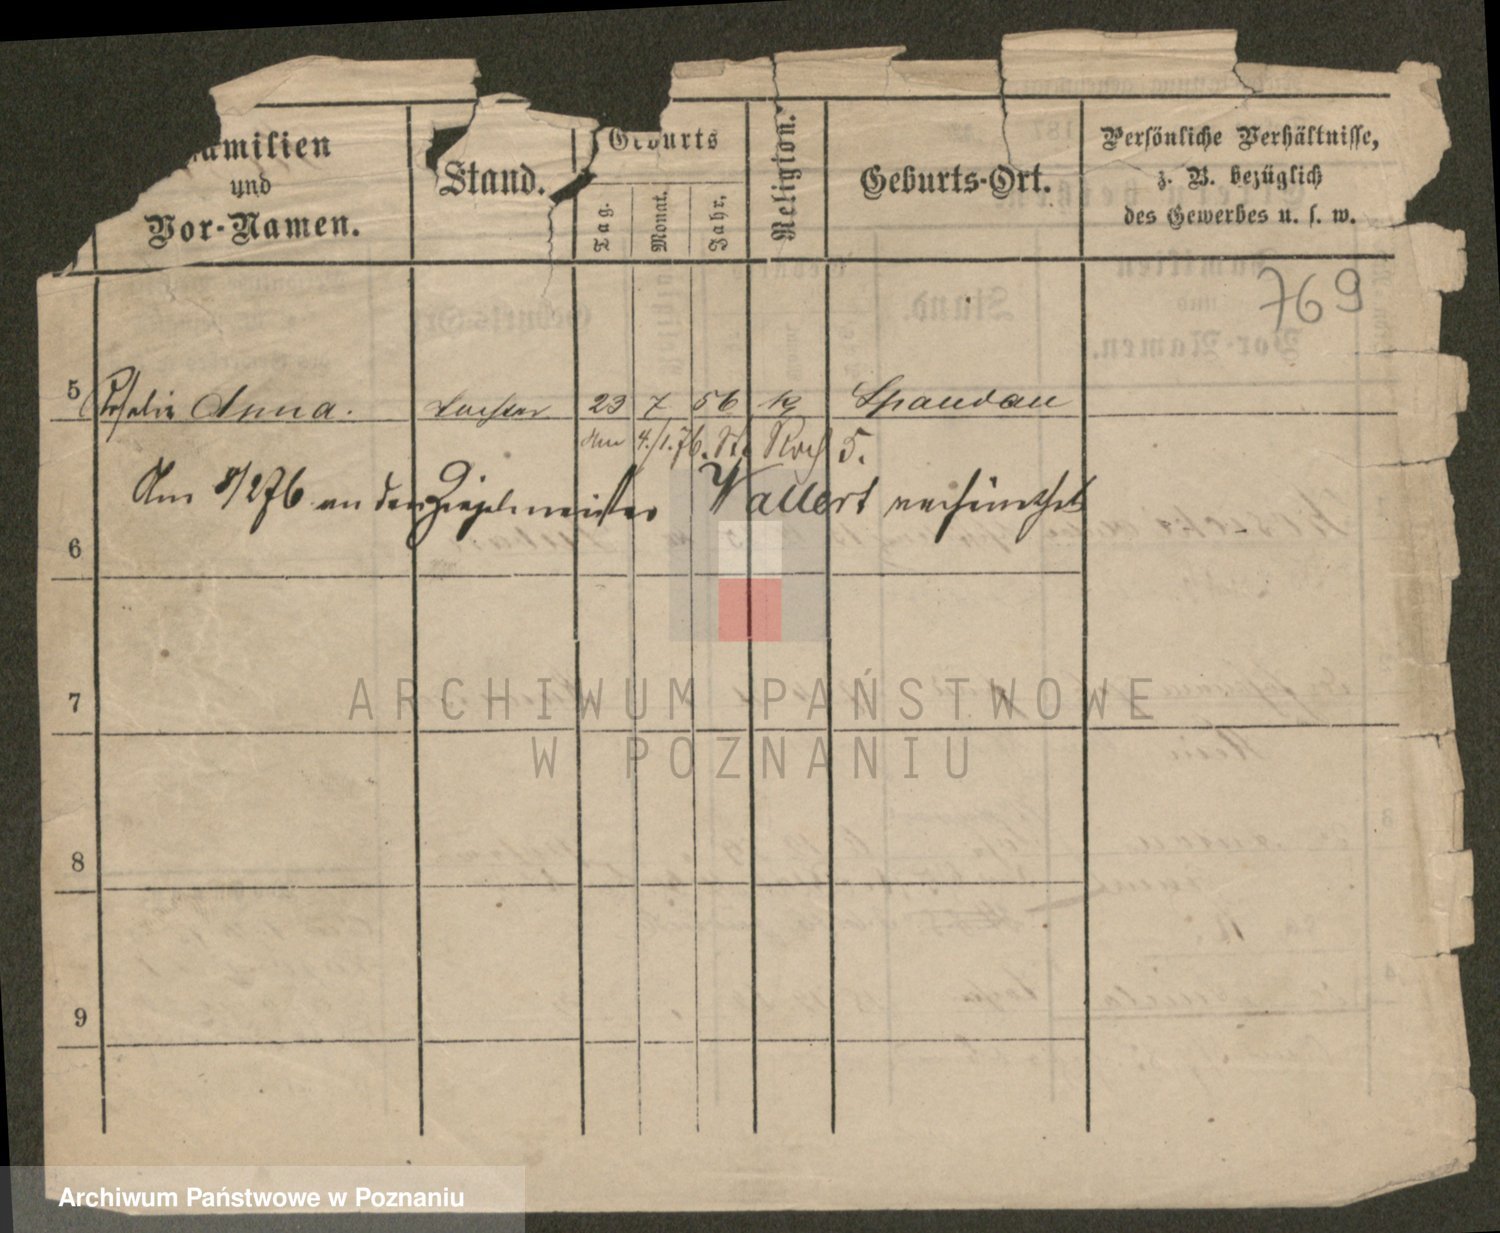 Familien
und
Vor-Namen.
Stand.
Geburts
Tag.
Monat.
Jahr.
Religion.
Geburts-Ort.
Persönliche Verhältnisse,
z. B. bezüglich
des Gewerbes u. s. w.
769
5 Rosalie Anna. Tochter 23 7 56 k Spandau
4./1.76. St. Roch 5.
Am 8/2 76 an den Ziegelmeister Wallert verheirathet
6
7
8
9
ARCHIWUM PAŃSTWOWE
W POZNANIU
Archiwum Państwowe w Poznaniu